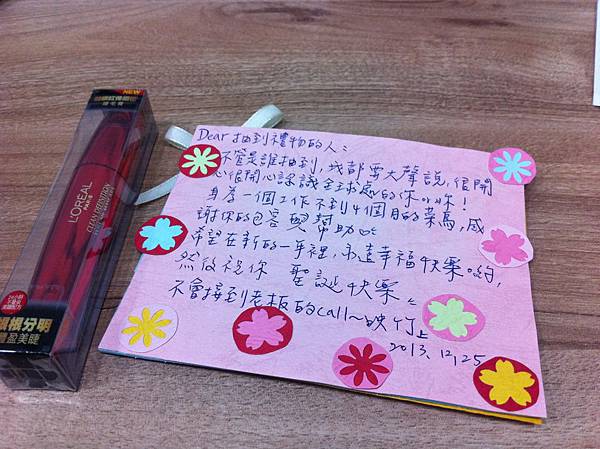 NEW
睫毛膏
L'ORÉAL
PARIS
CLEAN DEFINITION
根根分明
豐盈美睫
Dear 抽到禮物的人:
不管是誰抽到, 我都要大聲說, 很開
心很開心認識全球處的你呦!
身為一個工作不到4個月的菜鳥, 感
謝你的包容與幫助
希望在新的一年裡, 永遠幸福快樂喲,
然後祝你 聖誕快樂
不會接到老板的call~ 映竹上
2013.12.25